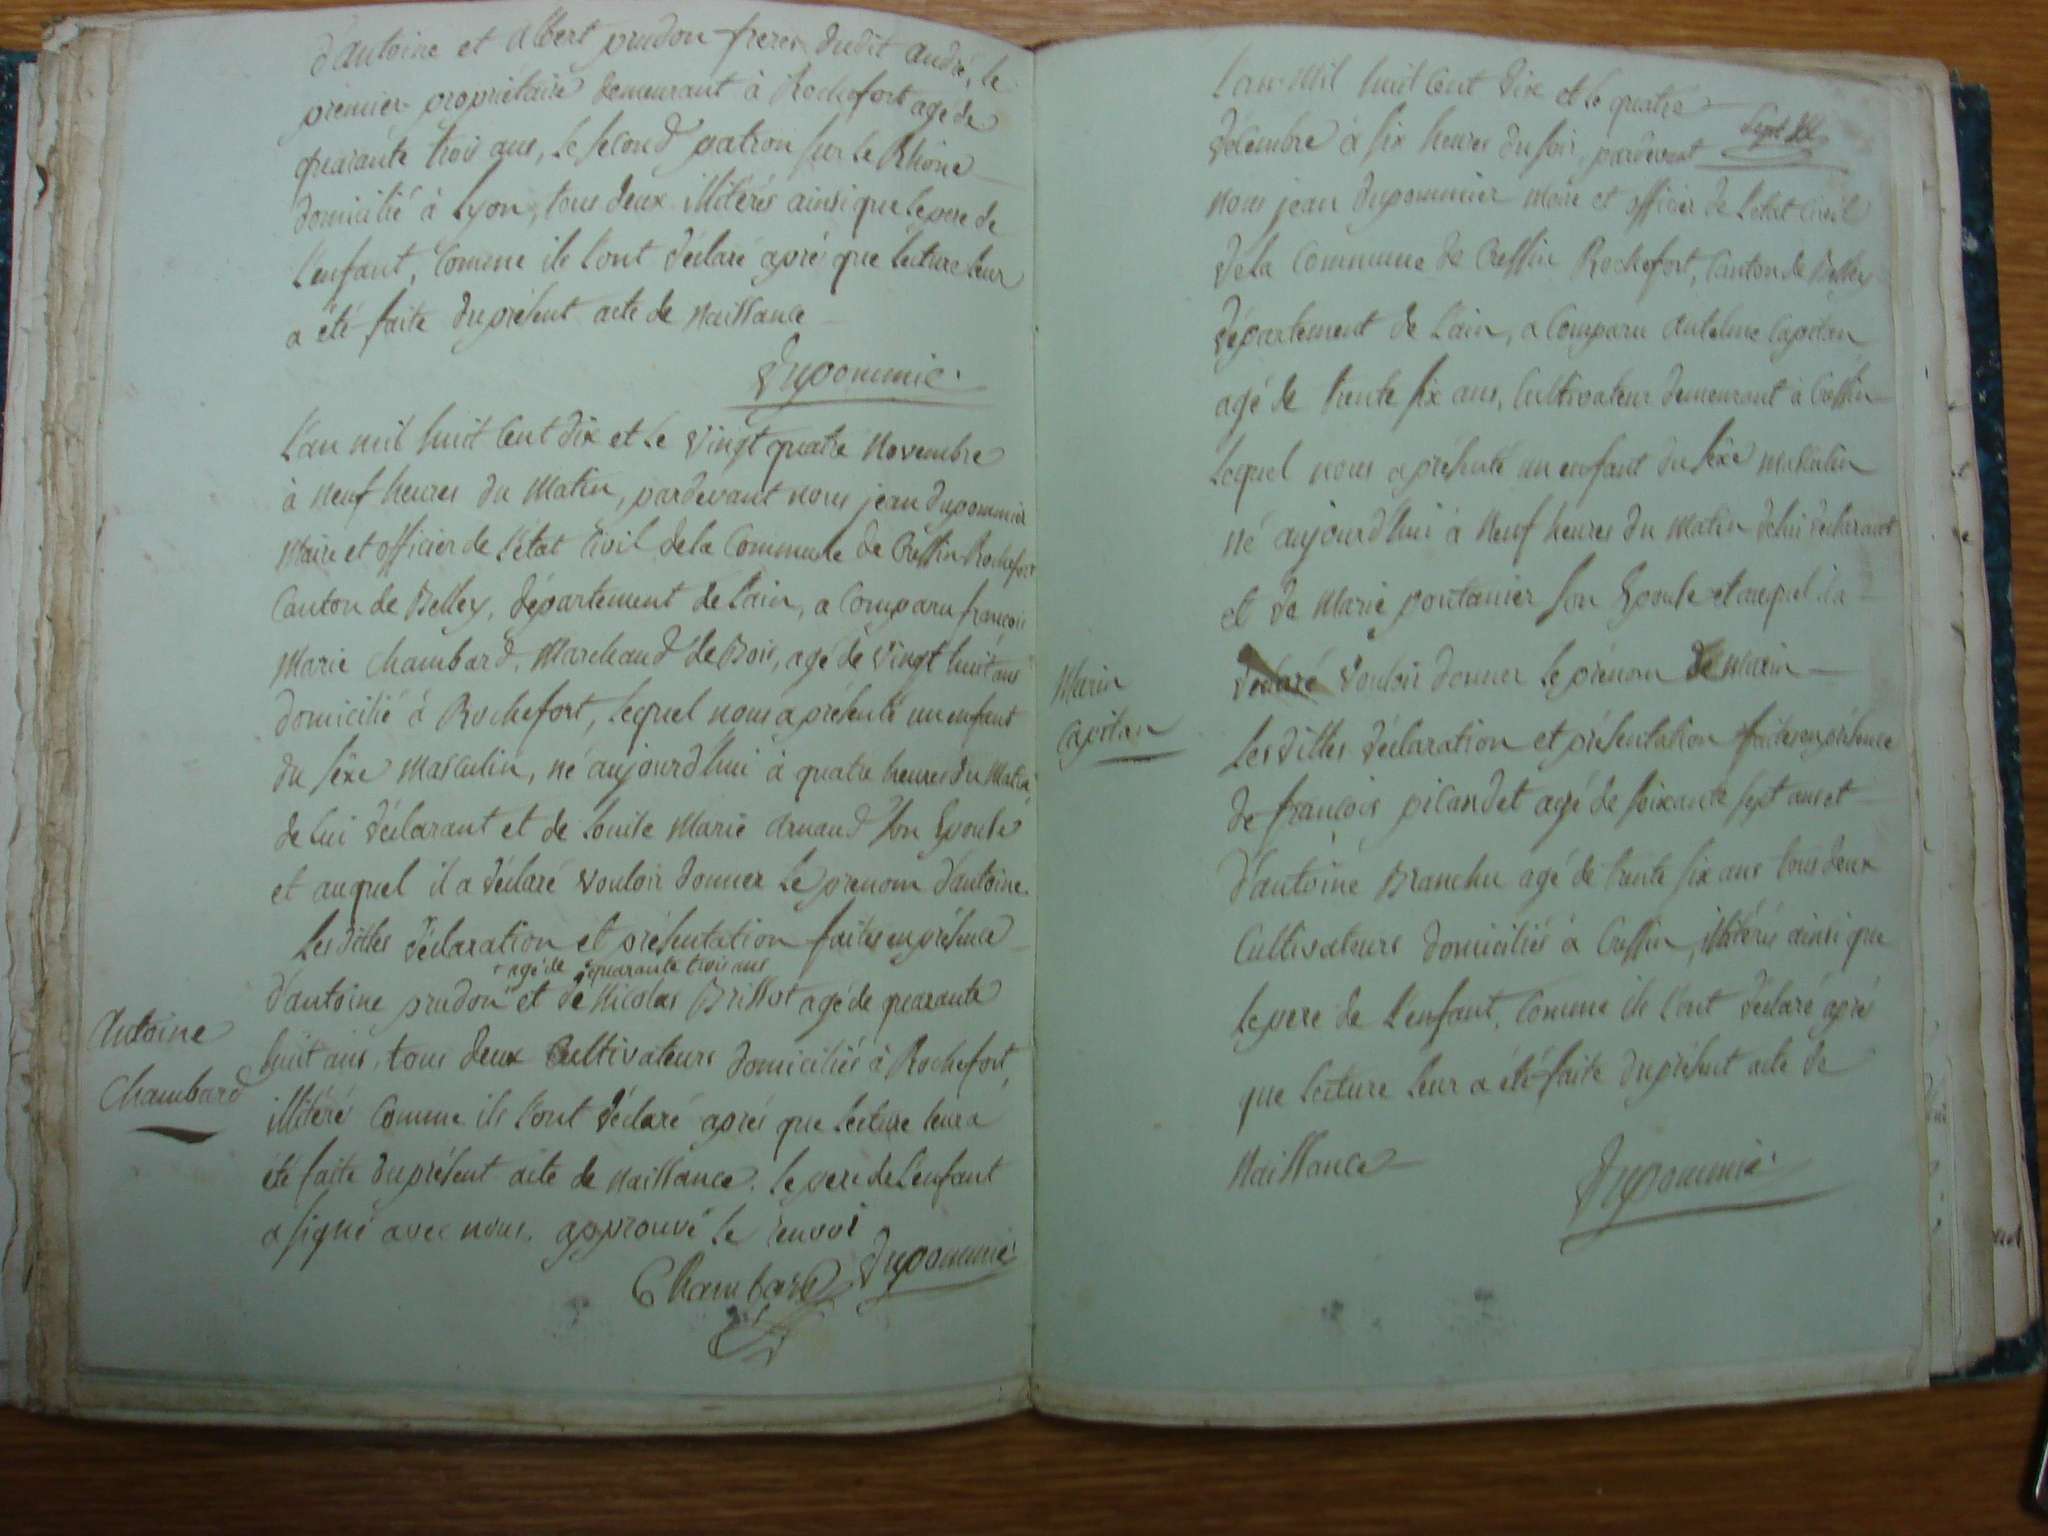 d'antoine et albert prudon freres dudit andré, le
premier propriétaire demeurant à Rochefort agé de
quarante trois ans, le second patron sur le Rhône
domicilié à Lyon, tous deux illitérés ainsi que le pere de
l'enfant, comme ils l'ont déclaré après que lecture leur
a été faite du présent acte de naissance
Dupommié
L'an mil huit cent dix et le vingt quatre novembre
à neuf heures du matin, pardevant nous jean dupommier
maire et officier de l'état civil de la commune de Cressin Rochefort
canton de Belley, département de l'ain, a comparu françois
marie chambard, marchand de Bois, agé de vingt huit ans
domicilié à Rochefort, lequel nous a présenté un enfant
du sexe masculin, né aujourd'hui à quatre heures du matin
de lui déclarant et de louise marie arnaud son Epouse
et auquel il a déclaré vouloir donner le prenom d'antoine.
Les dittes déclaration et présentation faites en présence
agé de quarante trois ans
d'antoine prudon et de Nicolas Brissot agé de quarante
Antoine
huit ans, tous deux cultivateurs domiciliés à Rochefort,
Chambard
illitéré comme ils l'ont déclaré après que lecture leur a
été faite du présent acte de naissance. le pere de l'enfant
a signé avec nous. approuvé le renvoi
Chambard Dupommié
L'an mil huit cent dix et le quatre
décembre à six heures du soir, pardevant
nous jean dupommier maire et officier de l'état civil
de la commune de Cressin Rochefort, canton de Belley
département de l'ain, a comparu antelme capitan
agé de trente six ans, cultivateur demeurant à Cressin
lequel nous a présenté un enfant du sexe masculin
né aujourd'hui à neuf heures du matin de lui déclarant
et de marie pontanier son Epouse et auquel il a
déclaré vouloir donner le prénom de marin
Marin
capitan
Les dittes déclaration et présentation faites en présence
de françois picandet agé de soixante sept ans et
d'antoine Branchu agé de trente six ans tous deux
cultivateurs domiciliés à Cressin, illitérés ainsi que
le pere de l'enfant, comme ils l'ont déclaré après
que lecture leur a été faite du présent acte de
naissance
Dupommié